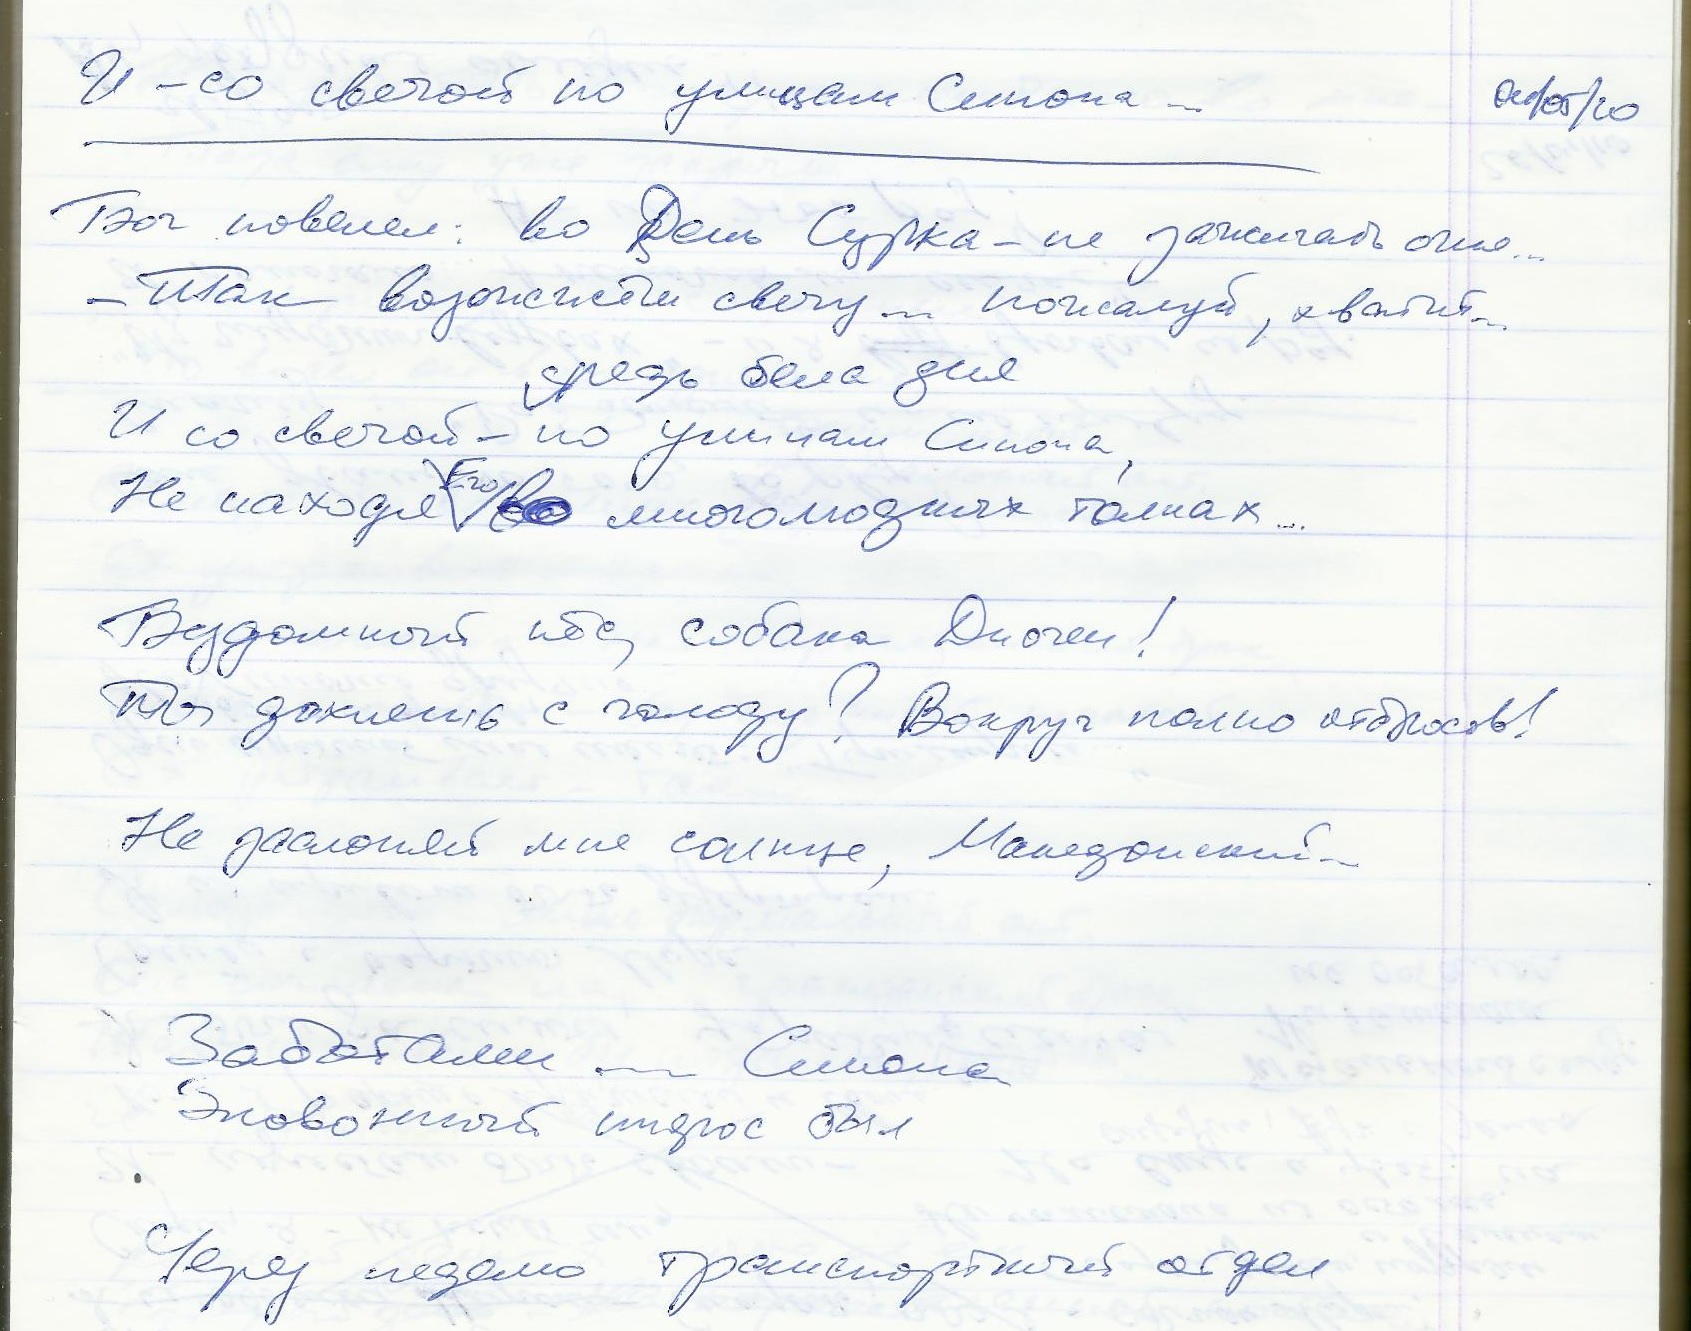 И – со свечой по улицам Синопа...
01/05/20
Бог повелел: во День Сурка – не зажигать огня...
– Так возожжём свечу... пожалуй, хватит...
средь бела дня
И со свечой – по улицам Синопа,
Не находя Его во многолюдных толпах...
Бездомный пёс, собака Диоген!
Ты дохнешь с голоду? Вокруг полно отбросов!
Не заслоняй мне солнце, Македонский...
Заботами ... Синопа
был
Через неделю транспортный отдел